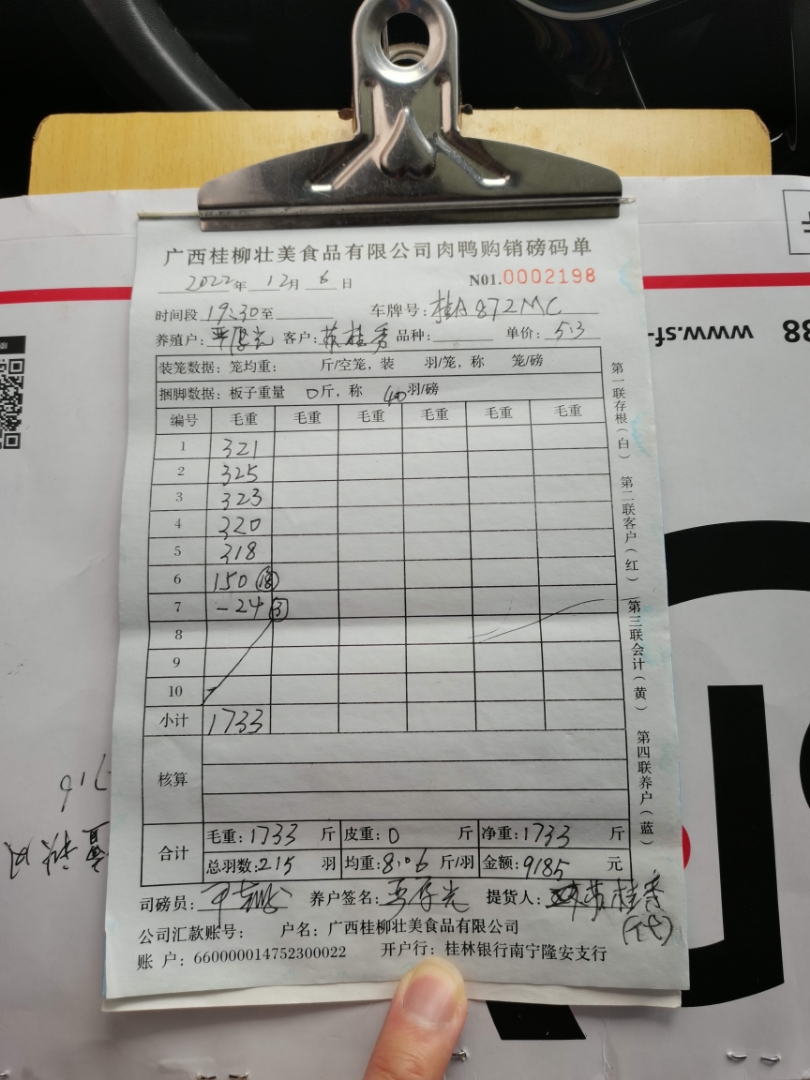 广西桂柳壮美食品有限公司肉鸭购销磅码单
2022年 12月 6日 N01.0002198
时间段 19:30至 车牌号: 桂A872MC
养殖户: 客户: 苏桂秀 品种: 单价: 5.3
装笼数据: 笼均重: 斤/空笼, 装 羽/笼, 称 笼/磅
捆脚数据: 板子重量 0斤, 称 40羽/磅
编号 毛重 毛重 毛重 毛重 毛重 毛重
1 321
2 325
3 323
4 320
5 318
6 150 (18)
7 -24 (3)
8
9
10
小计 1733
核算
合计 毛重: 1733 斤 皮重: 0 斤 净重: 1733 斤
总羽数: 215 羽 均重: 8.06 斤/羽 金额: 9185 元
司磅员: 养户签名: 提货人: 苏桂秀
(代)
公司汇款账号: 户名: 广西桂柳壮美食品有限公司
账 户: 660000014752300022 开户行: 桂林银行南宁隆安支行
第一联存根(白) 第二联客户(红) 第三联会计(黄) 第四联养户(蓝)
www.sf-
88